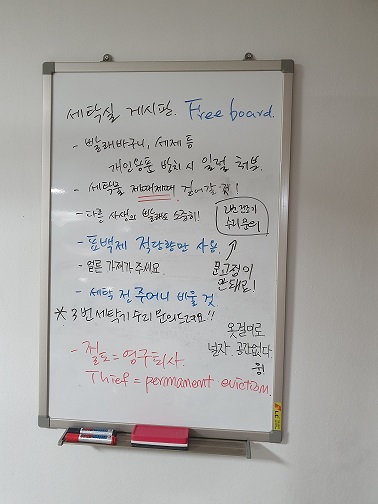 세탁실 게시판. Free board.
- 빨래바구니, 세제 등
개인용품 방치 시 일절 책X.
- 세탁물 제때제때 걷어갈 것!
- 다른 사생의 빨래도 소중히!
2번 건조기
수리 문의
- 표백제 적당량만 사용
문고정이
안돼요!
- 얼른 가져가 주세요.
- 세탁 전 주머니 비울 것
* 3번 세탁기 수리 문의드려요!!
옷걸이로
널자. 공간없다.
- 절도 = 영구퇴사.
Thief = permanent eviction.